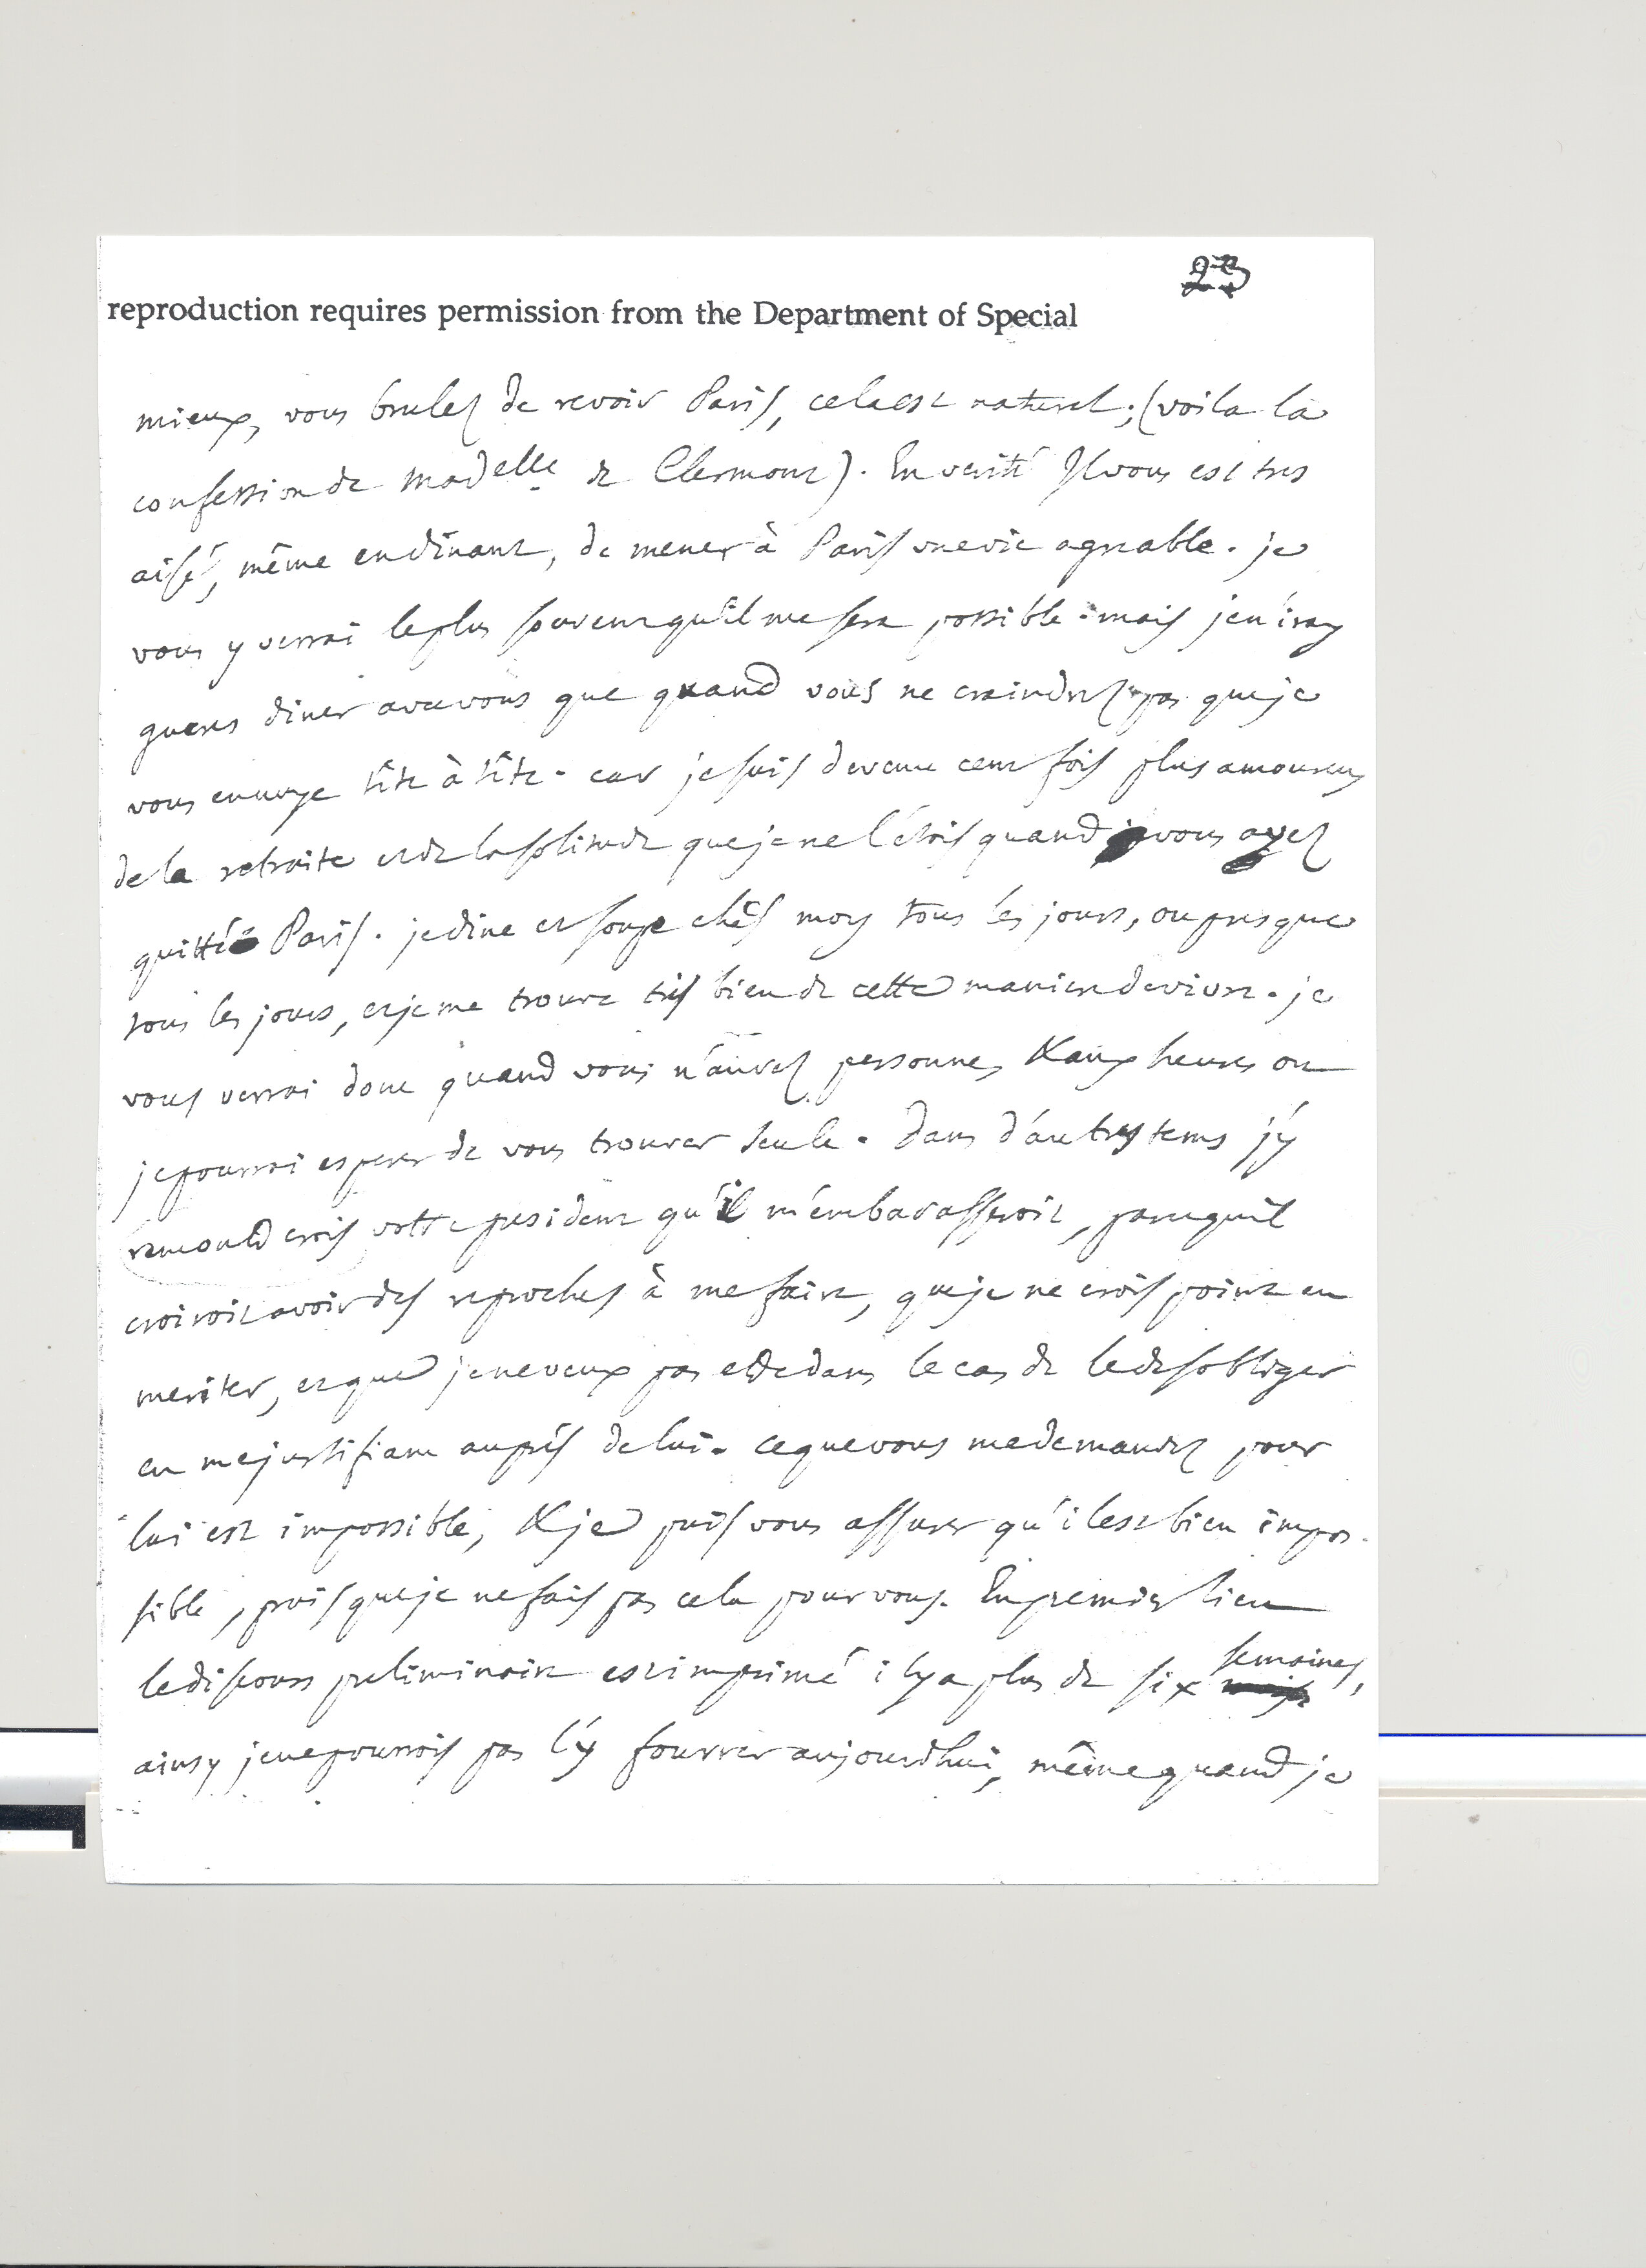 23
reproduction requires permission from the Department of Special
mieux, vous brulez de revoir Paris, cela est naturel; (voila la
confession de Madelle de Clermont). En verité Il vous est tres
aisé, même en dînant, de mener à Paris une vie agreable. je
vous y verrai le plus souvent qu'il me sera possible: mais je n'iray
gueres diner avec vous que quand vous ne craindrez pas que je
vous ennuye tête à tête. car je suis devenu cent fois plus amoureux
de la retraite et de la solitude que je ne l'étois quand vous avez
quitté Paris. je dine et soupe chés moy tous les jours, ou presque
tous les jours, et je me trouve tres bien de cette maniere de vivre. je
vous verrai donc quand vous n'aurez personne, & aux heures ou
je pourrai esperer de vous trouver seule. dans d'autres tems j'y
votre president qu'il m'embarasseroit, parcequ'il
croiroit avoir des reproches à me faire, que je ne crois point en
meriter, et que je ne veux pas etre dans le cas de le desobliger
en me justifiant auprès de lui. ce que vous me demandez pour
lui est impossible, & je puis vous assurer qu'il est bien impos-
sible, puisque je ne fais pas cela pour vous. En premier lieu
le discours preliminaire est imprimé il y a plus de six semaines,
ainsy je ne pourrois pas l'y fourrer aujourdhui, même quand je